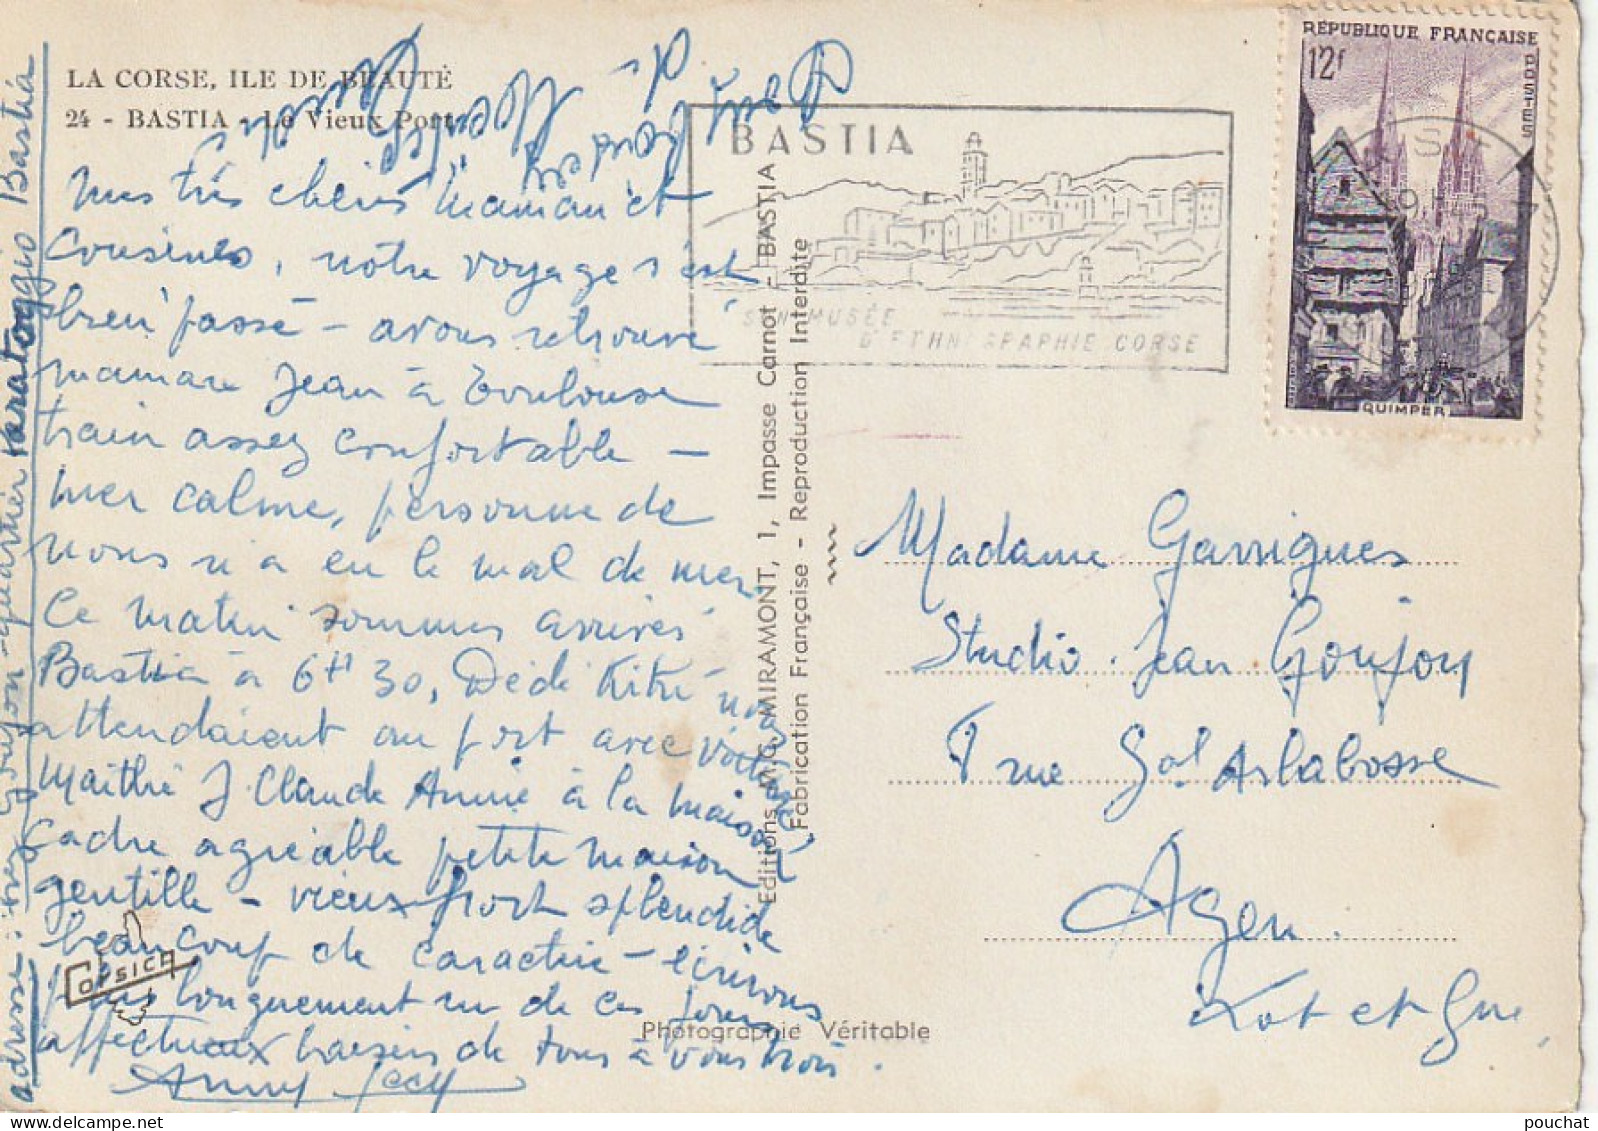 LA CORSE, ILE DE BEAUTÉ
24 - BASTIA - Le Vieux Port
mes très chères maman et
cousines, notre voyage s'est
bien passé - avons retrouvé
maman Jean à Toulouse
train assez confortable -
mer calme, personne de
nous n'a eu le mal de mer.
Ce matin sommes arrivés
Bastia à 6H30, Dédé Kiki nous
attendaient au port avec voiture
Maïthé J Claude Annie à la maison
cadre agréable petite maison
gentille - vieux port splendide
beaucoup de caractère - écrirons
plus longuement un de ces jours
affectueux baisers de tous à vous trois.
Anny Jacky
adresse : chez Goujon - quartier Bastia
CORSICA
Editions M.G. MIRAMONT, 1, Impasse Carnot - BASTIA
Fabrication Française - Reproduction Interdite
Photographie Véritable
BASTIA
SON MUSÉE
D'ETHNOGRAPHIE CORSE
RÉPUBLIQUE FRANÇAISE
12f
POSTES
QUIMPER
Madame Garrigues
Studio Jean Goujon
rue Gal Arlabosse
Agen
Lot et Gne
pouchat